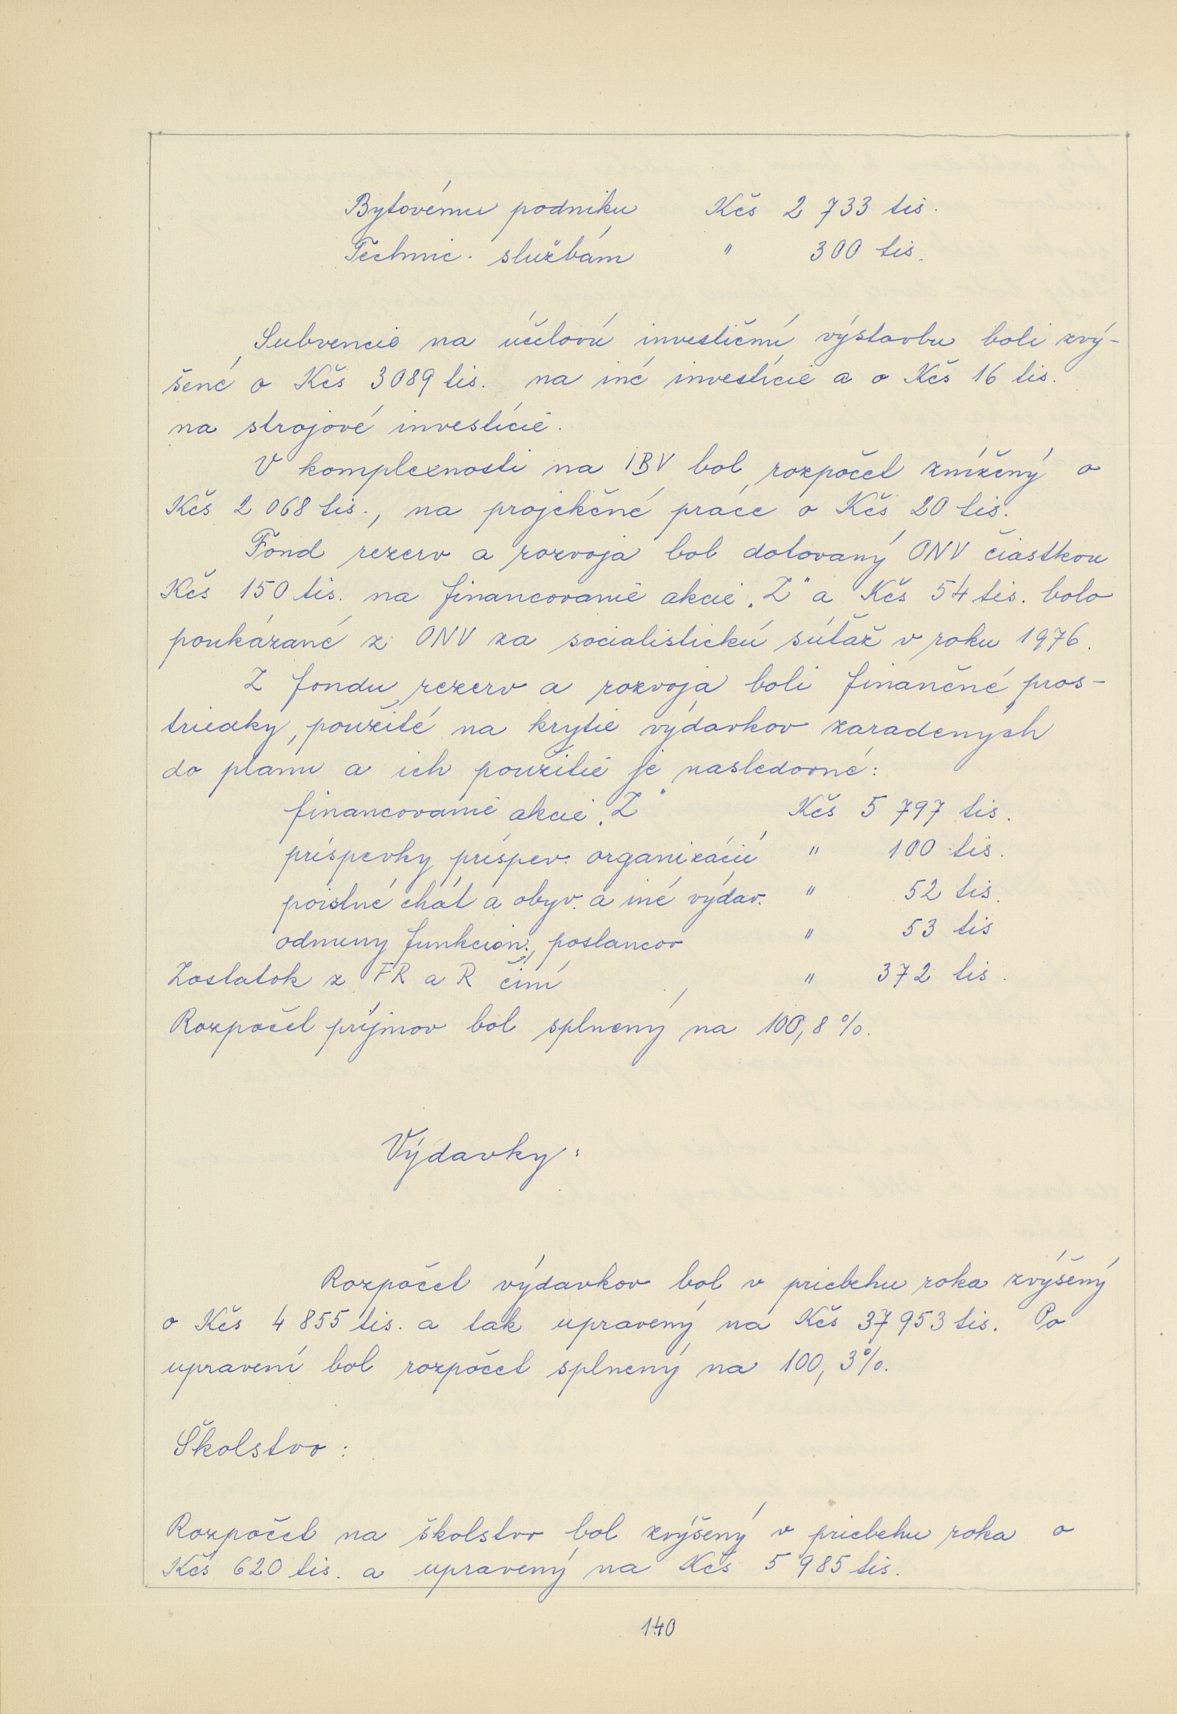 Bytovému podniku Kčs 2 733 tis.
Technic. službám " 300 tis.
Subvencie na účelovú investičnú výstavbu boli zvý-
šené o Kčs 3089 tis. na iné investície a o Kčs 16 tis.
na strojové investície.
V komplexnosti na IBV bol rozpočet znížený o
Kčs 2 068 tis., na projekčné práce o Kčs 20 tis.
Fond rezerv a rozvoja bol dotovaný ONV čiastkou
Kčs 150 tis. na financovanie akcie „Z" a Kčs 54 tis. bolo
poukázané z ONV za socialistickú súťaž v roku 1976.
Z fondu rezerv a rozvoja boli finančné pros-
triedky, použité na krytie výdavkov zaradených
do plánu a ich použitie je nasledovné:
financovanie akcie „Z" Kčs 5 797 tis.
príspevky príspev. organizácií " 100 tis.
poistné chát a obyv. a iné výdav. " 52 tis.
odmeny funkcion., poslancov " 53 tis
Zostatok z FR a R činí " 372 tis.
Rozpočet príjmov bol splnený na 100,8 %.
Výdavky:
Rozpočet výdavkov bol v priebehu roka zvýšený
o Kčs 4 855 tis. a tak upravený na Kčs 37 953 tis. Po
upravení bol rozpočet splnený na 100,3%.
Školstvo:
Rozpočet na školstvo bol zvýšený v priebehu roka o
Kčs 620 tis. a upravený na Kčs 5 985 tis.
140